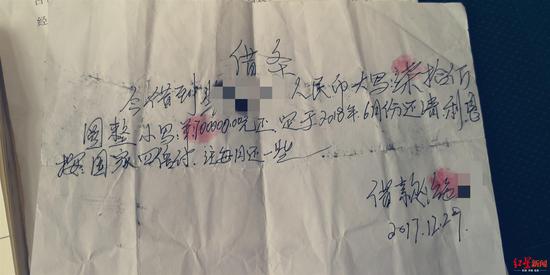 借条
今借到 人民币大写：柒拾万
圆整 小写：700000.00元还 定于2018年.6月份还清利息
按国家四倍付.注每月还一些
借款
2017.12.27.
红星新闻
经